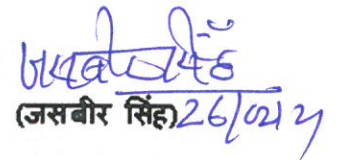 जसबीर सिंह
(जसबीर सिंह) 26/02/24